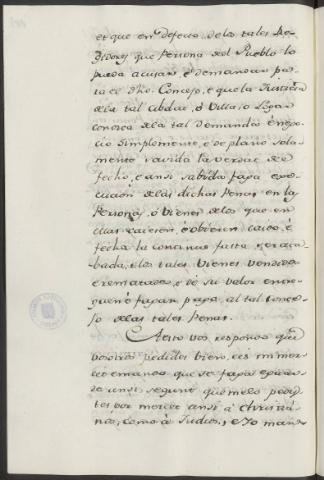 et que en defecto de los tales Re-
gidores que Persona del Pueblo lo
pueda acusar, e demandar pa-
ra el dho. Concejo, e que la Justicia
de la tal cibdad, o Villa, o Logar
conosca de la tal demanda
simplemente, e de plano sola-
mente savida la verdad de
fecho, e ansi sabido faga exe-
cucion de las dichas Penas en las
Personas, o Vienes de los que en
ellas caieren, e obieren caido, e
fecha la continua fasta ser aca-
bada, e los tales Vienes vendidos
e rematados, e de su valor entre-
guen e fagan pago al tal conce-
jo de las tales Penas.
A esto vos respondo que
vosotros pedides bien, e es mi mer-
ced e mando que se faga
ansi, segunt que me lo pedis-
tes por merced ansi a Christia-
nos, como a Judios, e Yo mando